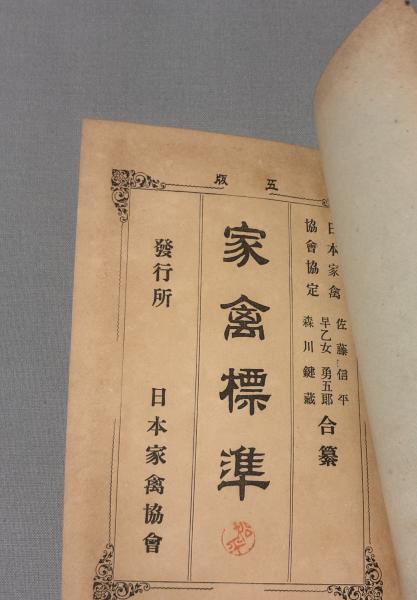 五版
日本家禽
協會協定
佐藤信平
早乙女勇五郎
森川鍵藏
合纂
家禽標準
發行所 日本家禽協會